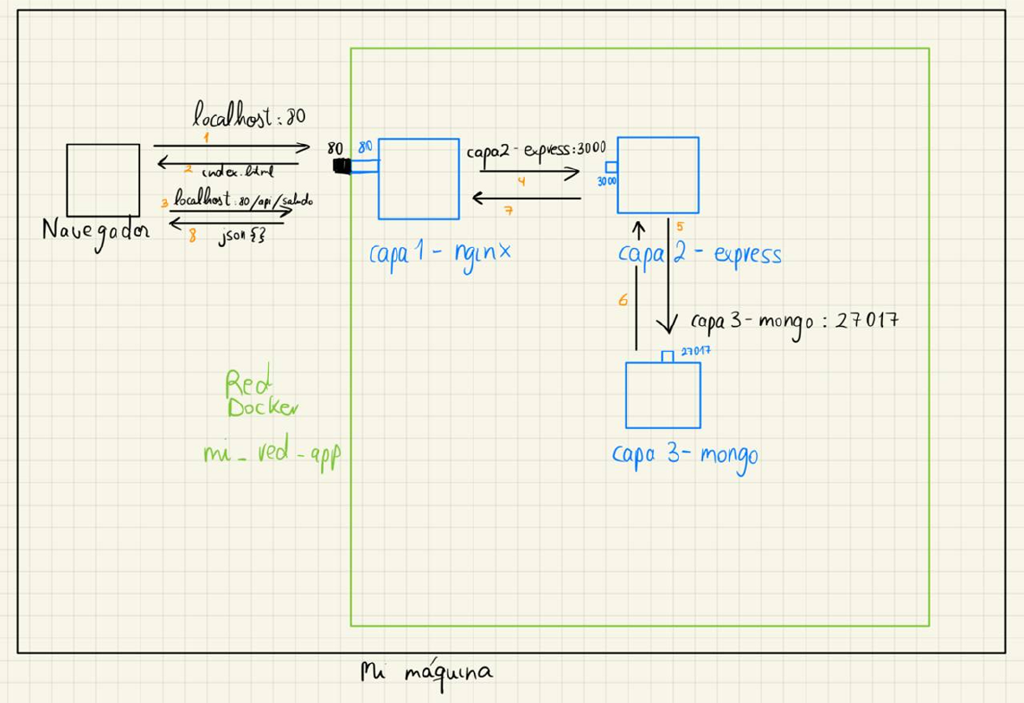 localhost:80
1
2 index.html
3 localhost:80/api/saludo
8 json {}
Navegador
80
80
capa 1 - nginx
capa2 - express:3000
4
7
3000
capa 2 - express
5
6
capa 3 - mongo : 27017
27017
capa 3 - mongo
Red
Docker
mi_red_app
Mi máquina